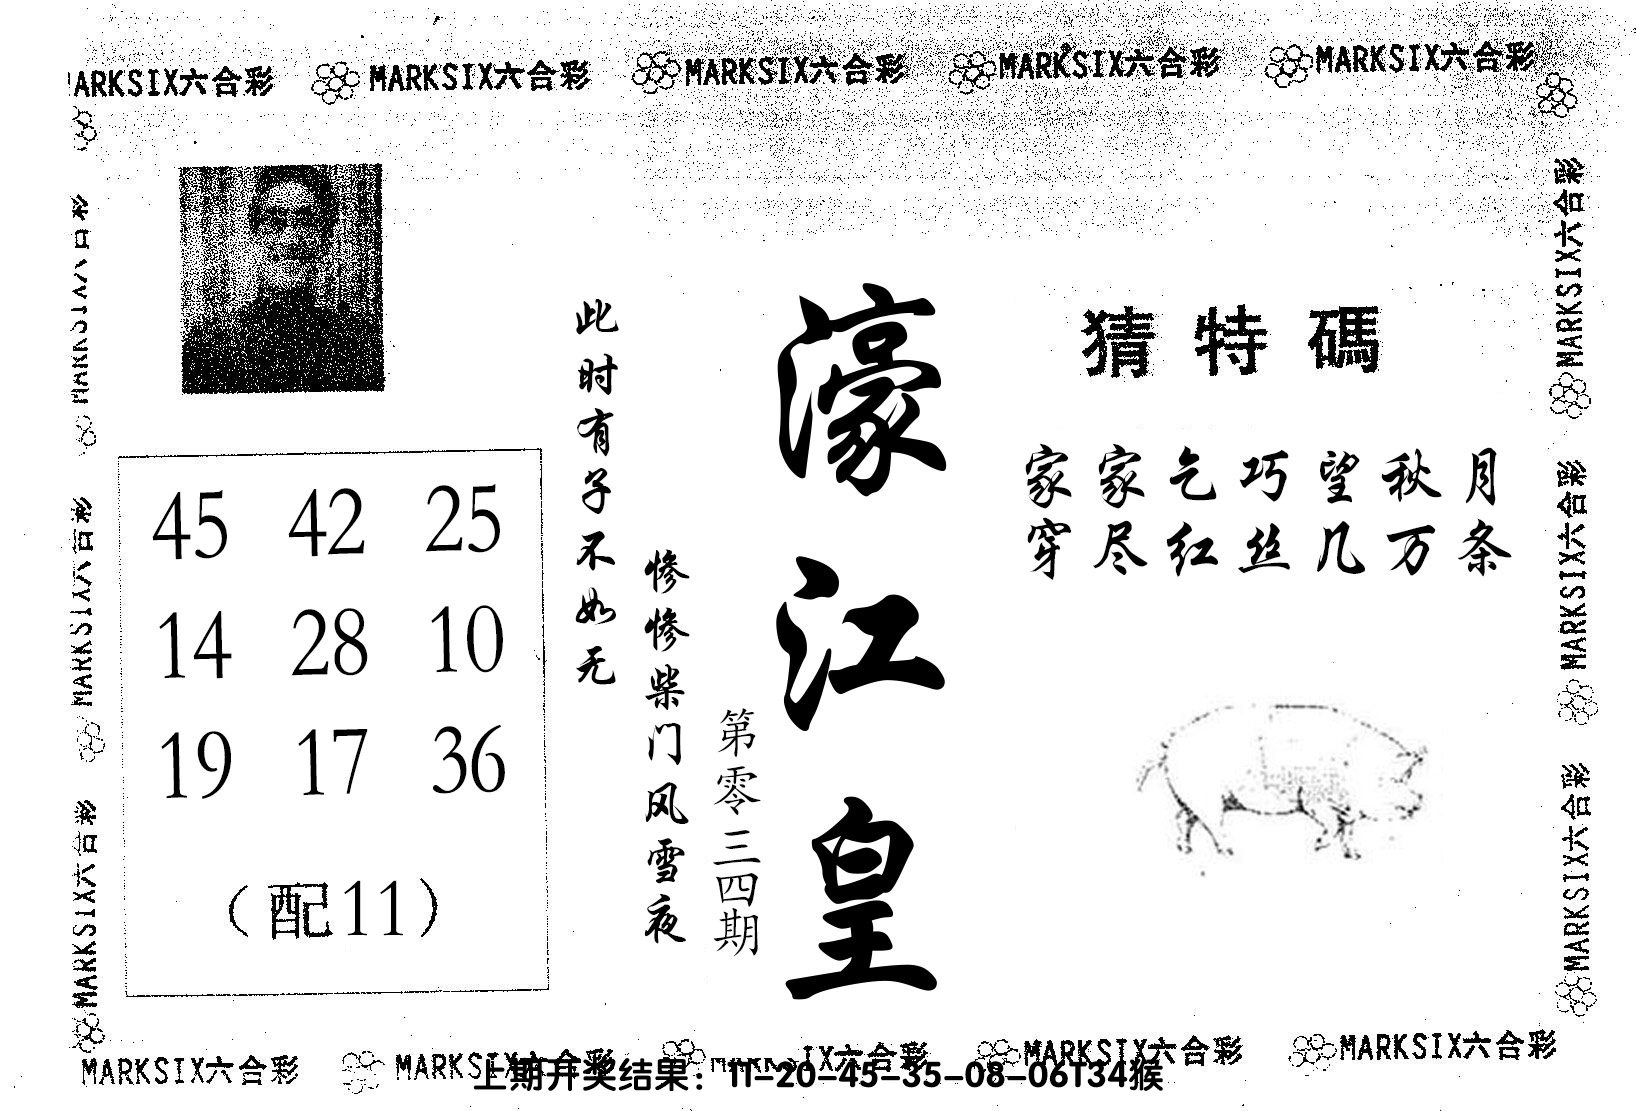 MARKSIX六合彩 MARKSIX六合彩 MARKSIX六合彩 MARKSIX六合彩 MARKSIX六合彩
猜特碼
家家乞巧望秋月
穿尽红丝几万条
濠江皇
第零三四期
惨惨柴门风雪夜
此时有子不如无
45 42 25
14 28 10
19 17 36
(配11)
MARKSIX六合彩
MARKSIX六合彩
MARKSIX六合彩
MARKSIX六合彩
MARKSIX六合彩
MARKSIX六合彩
MARKSIX六合彩 MARKSIX六合彩 MARKSIX六合彩 MARKSIX六合彩 MARKSIX六合彩
上期开奖结果：11-20-45-35-08-06T34猴